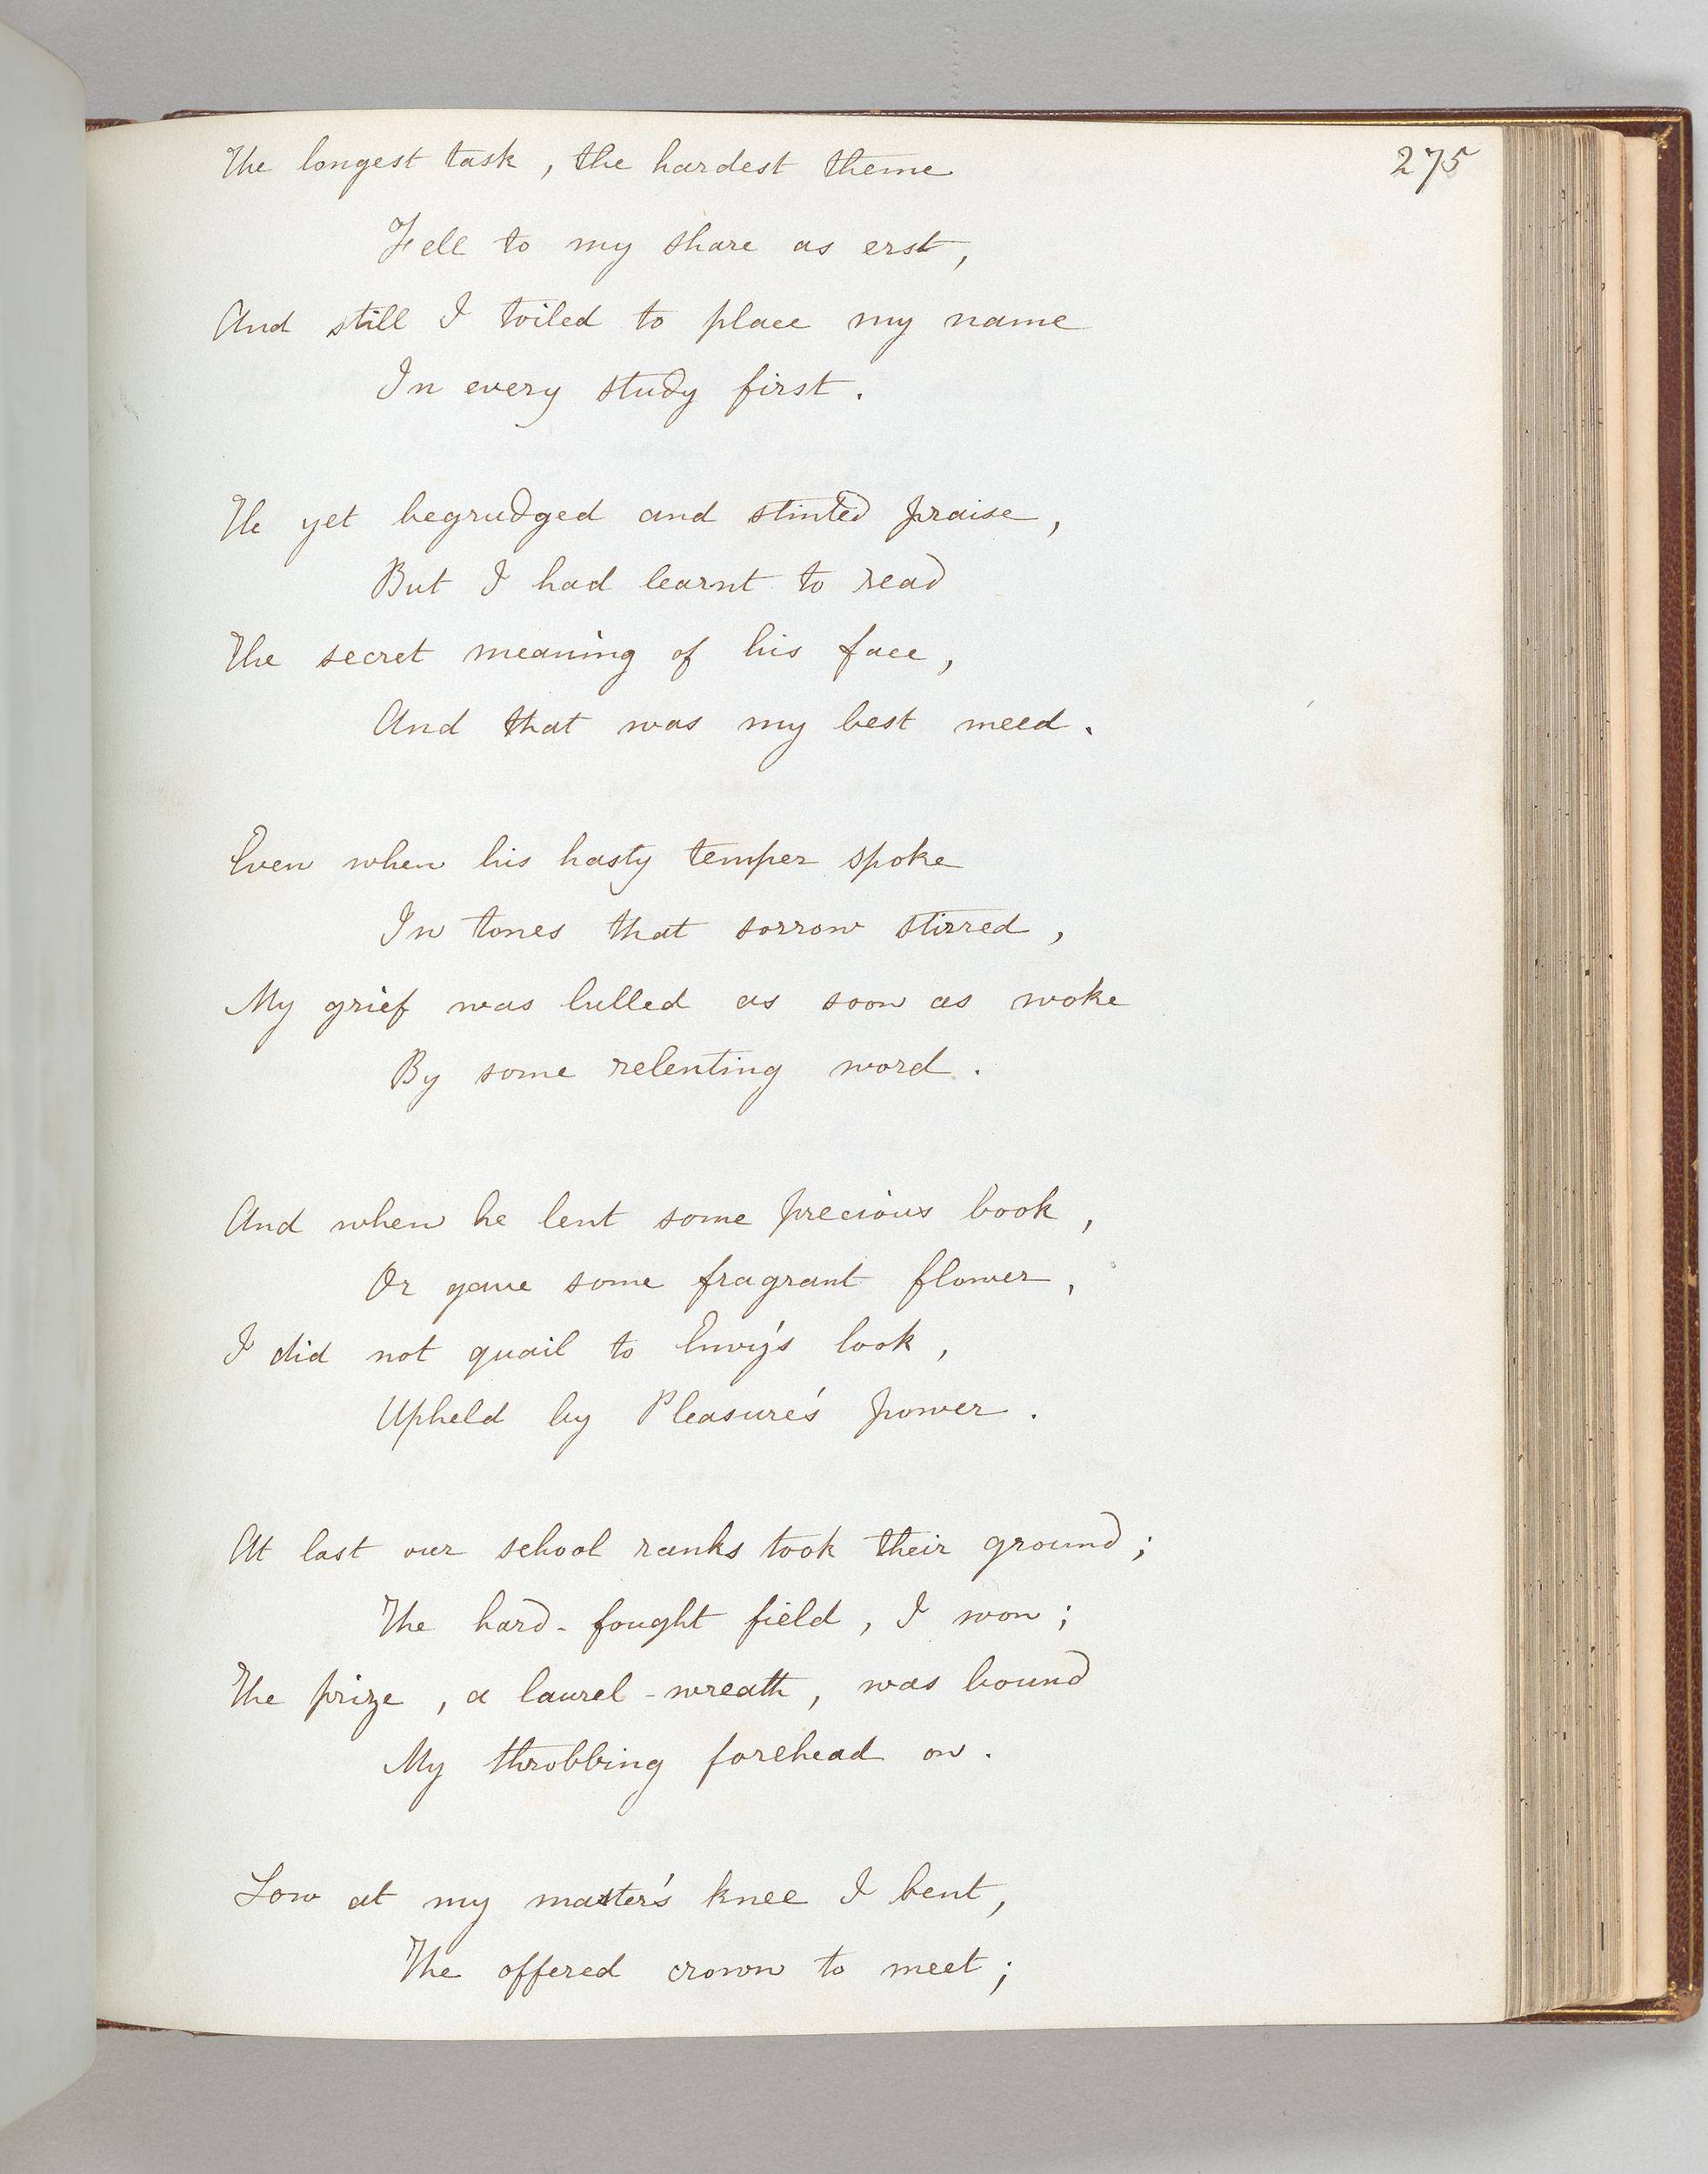 275
The longest task, the hardest theme
Fell to my share as erst,
And still I toiled to place my name
In every study first.
He yet begrudged and stinted praise,
But I had learnt to read
The secret meaning of his face,
And that was my best meed.
Even when his hasty temper spoke
In tones that sorrow stirred,
My grief was lulled as soon as woke
By some relenting word.
And when he lent some precious book,
Or gave some fragrant flower,
I did not quail to Envy's look,
Upheld by Pleasure's power.
At last our school ranks took their ground;
The hard-fought field, I won;
The prize, a laurel-wreath, was bound
My throbbing forehead on.
Low at my master's knee I bent,
The offered crown to meet;